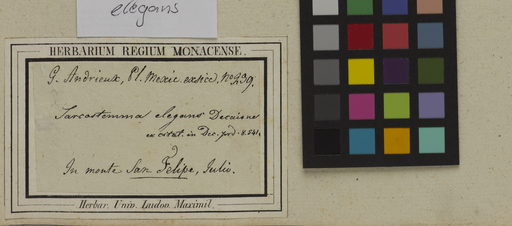 elegans
HERBARIUM REGIUM MONACENSE.
G. Andrieux, Pl. Mexic. exsicc. No 239.
Sarcostemma elegans Decaisne
ex citat. in Dec. prd. 8.541.
In monte San Felipe, Julio.
Herbar. Univ. Ludov. Maximil.